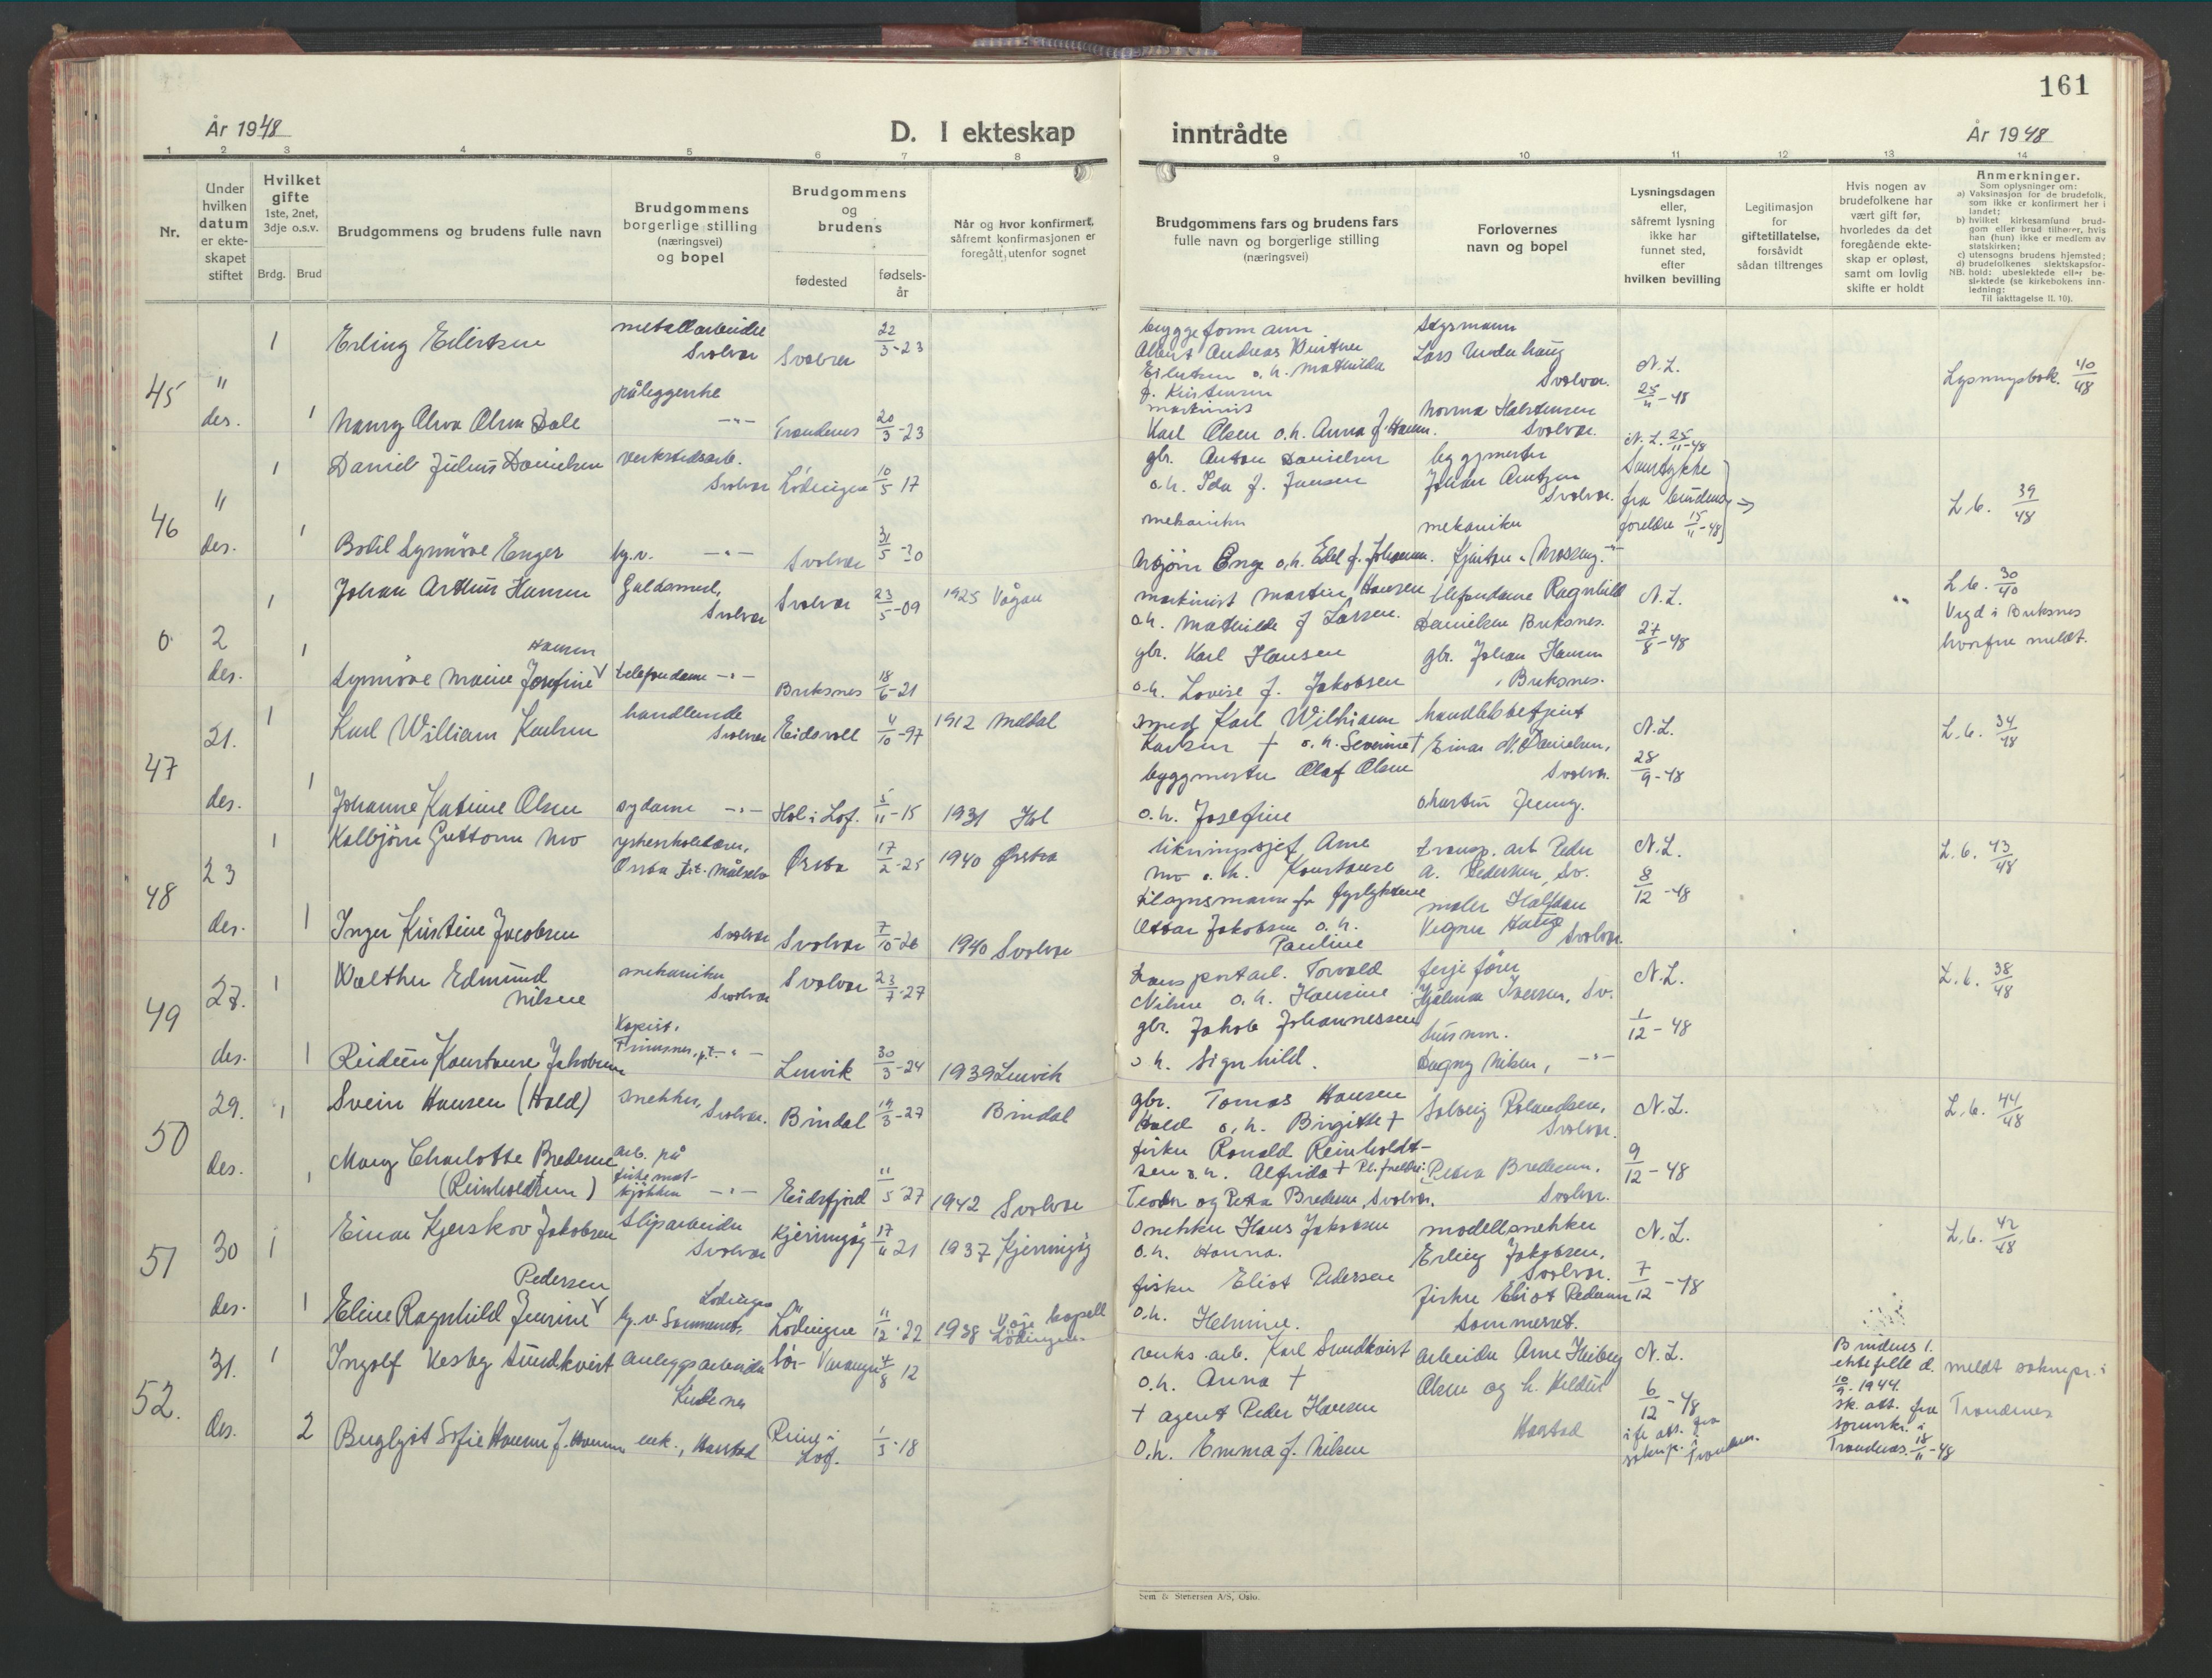 161
År 1948
D. I ekteskap
inntrådte
År 1948
1 2 3 4 5 6 7 8 9 10 11 12 13 14
Nr.
Under hvilken datum er ekteskapet stiftet
Hvilket gifte
1ste, 2net, 3dje o.s.v.
Brdg. Brud
Brudgommens og brudens fulle navn
Brudgommens borgerlige stilling (næringsvei) og bopel
Brudgommens og brudens
fødested
fødsels-år
Når og hvor konfirmert, såfremt konfirmasjonen er foregått utenfor sognet
Brudgommens fars og brudens fars fulle navn og borgerlige stilling (næringsvei)
Forlovernes navn og bopel
Lysningsdagen eller, såfremt lysning ikke har funnet sted, efter hvilken bevilling
Legitimasjon for giftetillatelse, forsåvidt sådan tiltrenges
Hvis nogen av brudefolkene har vært gift før, hvorledes da det foregående ekteskap er opløst, samt om lovlig skifte er holdt
Anmerkninger.
Som oplysninger om:
a) Vaksinasjon for de brudefolk, som ikke er konfirmert her i landet;
b) hvilket kirkesamfund brudgom eller brud tilhører, hvis han (hun) ikke er medlem av statskirken;
c) utensogns brudens hjemsted;
d) brudefolkenes slektskapsforhold: ubeslektede eller beslektede (se kirkebokens innledning:
NB. Til iakttagelse II. 10).
45 " des.
1 Erling Eilertsen metallarbeider Svolvær Svolvær 22/3-23
byggeformann Albert Andreas Eilertsen o. h. Mathilda f. Kristensen
Lars Underhaug Svolvær. N.L. 25/11-48 Lysningsbok. 40/48
1 Nancy Alva Olsen Dale påleggerske -"- Trondenes 20/3-23
maskinist Karl Olsen o.h. Anna f. Hansen. Norma Halstensen Svolvær.
46 " des.
1 Daniel Julius Danielsen verkstedsarb. Svolvær Lødingen 10/5 17
gbr. Anton Danielsen o.h. Ida f. Jensen byggmester Johan Arntzen Svolvær.
N.L. 25/11-48 Samtykke fra brudens foreldre 15/11-48 L.b. 39/48
1 Bodil Synnøve Enger hj.v. -"- Svolvær 31/5-30
mekaniker mekaniker
0 2 des.
1 Johan Arthur Hansen Guldsmed, Svolvær Svolvær 23/5-09 1925 Vågan
maskinist Martin Hansen o.h. Mathilde f Larsen. telefondame Ragnhild Danielsen Buksnes.
N.L. 27/8-48 L.b. 30/40 Vigd i Buksnes hvorfra meldt.
1 Synnøve Marie Josefine Hansen telefondame -"- Buksnes 18/6-21
gbr. Karl Hansen o.h. Lovise f. Jakobsen gbr. Johan Hansen, Buksnes.
47 21. des.
1 Karl William Karlsen handlende Svolvær Eidsvoll 4/10-97 1912 Meldal
smed Karl Wilhiam Karlsen † o.h. Severine † handelsbetjent Einar N. Danielsen, Svolvær.
N.L. 28/9-48 L.b. 34/48
1 Johanne Katrine Olsen sydame -"- Hol i Lof. 5/11-15 1931 Hol
byggmester Olaf Olsen o.h. Josefine Martin Jenny.
48 23 des.
1 Kolbjørn Guttorm Mo Ørsta p.t. Målselv Ørsta 17/2-25 1940 Ørsta
likningssjef Arne Mo o.h. Konstanse transp. arb Peder A. Pedersen, Sv.
N.L. 8/12-48 L.b. 43/48
1 Inger Kristine Jacobsen Svolvær Svolvær 7/10-26 1940 Svolvær
Ottar Jakobsen o.h. Pauline maler Halfdan Svolvær.
49 27. des.
1 Walther Edmund Nilsen mekaniker Svolvær Svolvær 23/7-27
transportarb. Torvald Nilsen o.h. Hansine ferjefører Hjalmar Iversen, Sv.
N.L. 1/12-48 L.b. 38/48
1 Reidun Konstanse Jakobsen p.t. -"- Lenvik 30/3-24 1939 Lenvik
gbr. Jakob Johannessen o h. Signhild. husm. Dagny Nilsen, -"-
50 29. des.
1 Svein Hansen (Hald) snekker, Svolvær. Bindal 19/3-27 Bindal
gbr. Tomas Hansen Hald o.h. Birgitte † Solveig Rolandsen, Svolvær.
N.L. 9/12-48 L.b. 44/48
1 Mary Charlotte Bredesen (Reinholdtsen) arb. på fiskematkjøkken -"- Eidsfjord 11/5-27 1942 Svolvær
fisker Ronald Reinholdtsen o.h. Alfrida † Pl.foreldre: Teodor og Petra Bredesen, Svolvær. Petra Bredesen, Svolvær.
51 30 des.
1 Einar Kjerskov Jakobsen Sliparbeider Svolvær Kjerringøy 17/11 21 1937 Kjerringøy
snekker Hans Jakobsen o.h. Hanna. modellsnekker Erling Jakobsen, Svolvær.
N.L. 7/12-48 L.b. 42/48
1 Eline Ragnhild Jensine Pedersen hj.v. Sommerset, Lødingen Lødingen 11/12-22 1938 kapell Lødingen
fisker Eliot Pedersen o.h. Helmine. fisker Eliot Pedersen Sommerset.
52. 31. des.
1 Ingolf Vesby Sundkvist anleggsarbeider Kirkenes Sør-Varanger 4/8 12
verks.arb. Karl Sundkvist o.h. Anna † arbeider Arne Heiberg Olsen og h. Hildur Harstad
N.L. 6/12-48 ifl. att. fra sokenpr. i Trondenes.
Brudens 1. ektefelle d. 10/9-1944. sk. att. fra sorenskr. i Trondenes. 18/11-48
meldt sokenpr. i Trondenes
2 Bergljot Sofie Hansen f. Hansen enk., Harstad Reine i Lof. 1/3-18
† agent Peder Hansen O.h. Emma f. Nilsen
Sem & Stenersen A/S, Oslo.